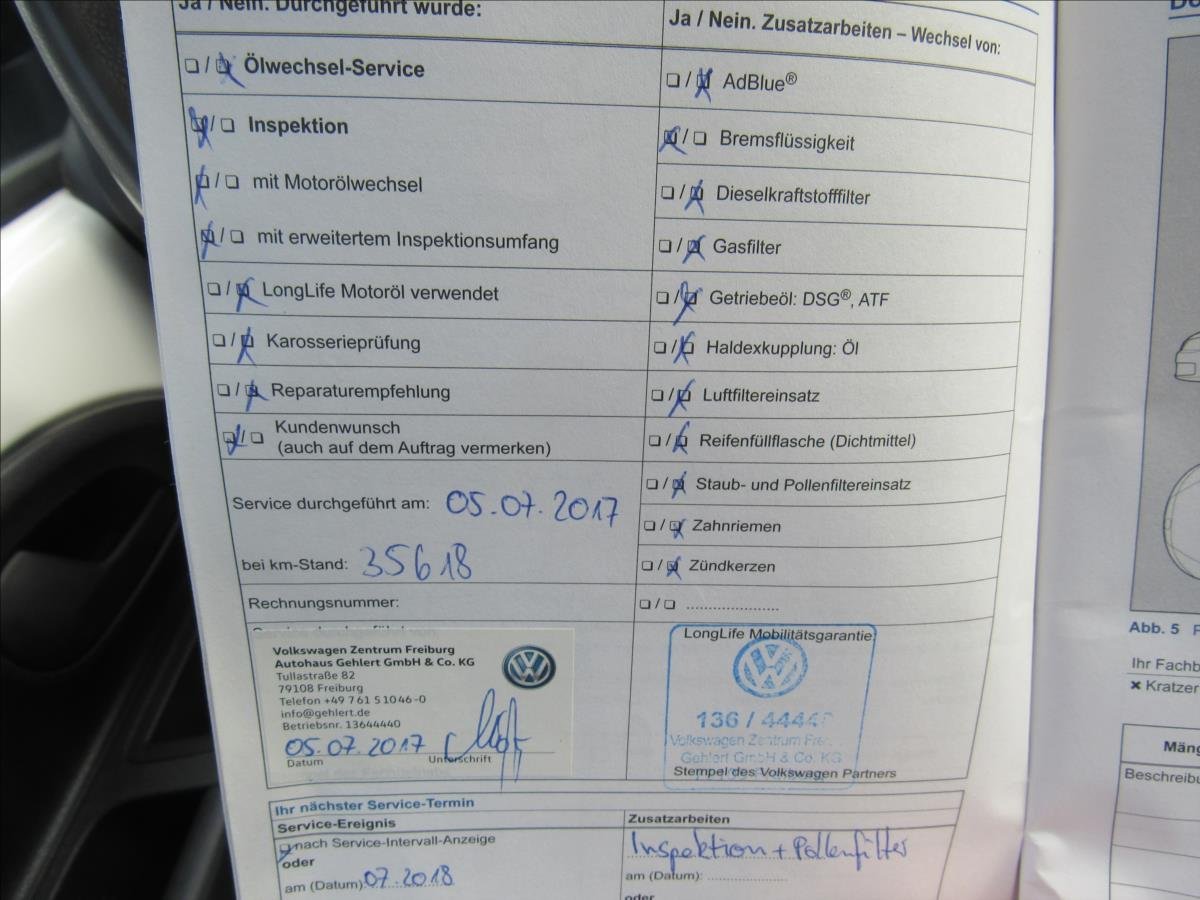 Ja / Nein. Durchgeführt wurde:
Ölwechsel-Service
Inspektion
mit Motorölwechsel
mit erweitertem Inspektionsumfang
LongLife Motoröl verwendet
Karosserieprüfung
Reparaturempfehlung
Kundenwunsch
(auch auf dem Auftrag vermerken)
Service durchgeführt am: 05.07.2017
bei km-Stand: 35618
Rechnungsnummer:
Ja / Nein. Zusatzarbeiten – Wechsel von:
AdBlue®
Bremsflüssigkeit
Dieselkraftstofffilter
Gasfilter
Getriebeöl: DSG®, ATF
Haldexkupplung: Öl
Luftfiltereinsatz
Reifenfüllflasche (Dichtmittel)
Staub- und Pollenfiltereinsatz
Zahnriemen
Zündkerzen
Volkswagen Zentrum Freiburg
Autohaus Gehlert GmbH & Co. KG
Tullastraße 82
79108 Freiburg
Telefon +49 7 61 5 10 46 -0
info@gehlert.de
Betriebsnr. 13644440
05.07.2017
Datum Unterschrift
LongLife Mobilitätsgarantie
136 /
Volkswagen Zentrum
Gehlert GmbH & Co. KG
Stempel des Volkswagen Partners
Ihr nächster Service-Termin
Service-Ereignis
nach Service-Intervall-Anzeige
oder
am (Datum): 07.2018
Zusatzarbeiten
Inspektion + Pollenfilter
am (Datum):
oder
Abb. 5
Ihr Fachb
× Kratzer
Mäng
Beschreibu